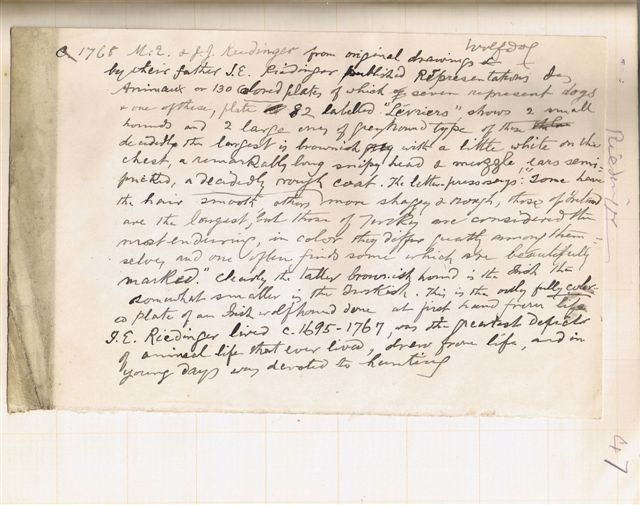 Wolfdog
c 1768 M.E. & J.J. Riedinger from original drawings
by their father J.E. Riedinger published Représentations des
Animaux or 130 colored plates of which seven represent dogs
& one of these, plate 82 labelled "Lévriers" shows 2 small
hounds and 2 large ones of greyhound type of these
decidedly the largest is brownish grey with a little white on the
chest, a remarkably long snipey head & muzzle, ears semi-
pricked, a decidedly rough coat. The letter-press says: "Some have
the hair smooth others more shaggy & rough, those of Ireland
are the largest, but those of Turkey are considered the
most enduring, in color they differ greatly among them-
selves and one often finds some which are beautifully
marked." Clearly the taller brownish hound is the Irish the
somewhat smaller is the Turkish. This is the only fully color-
ed plate of an Irish wolfhound done at first hand from life
J.E. Riedinger lived c. 1695-1767, was the greatest depictor
of animal life that ever lived, drew from life, and in
young days was devoted to hunting
Riedinger
47